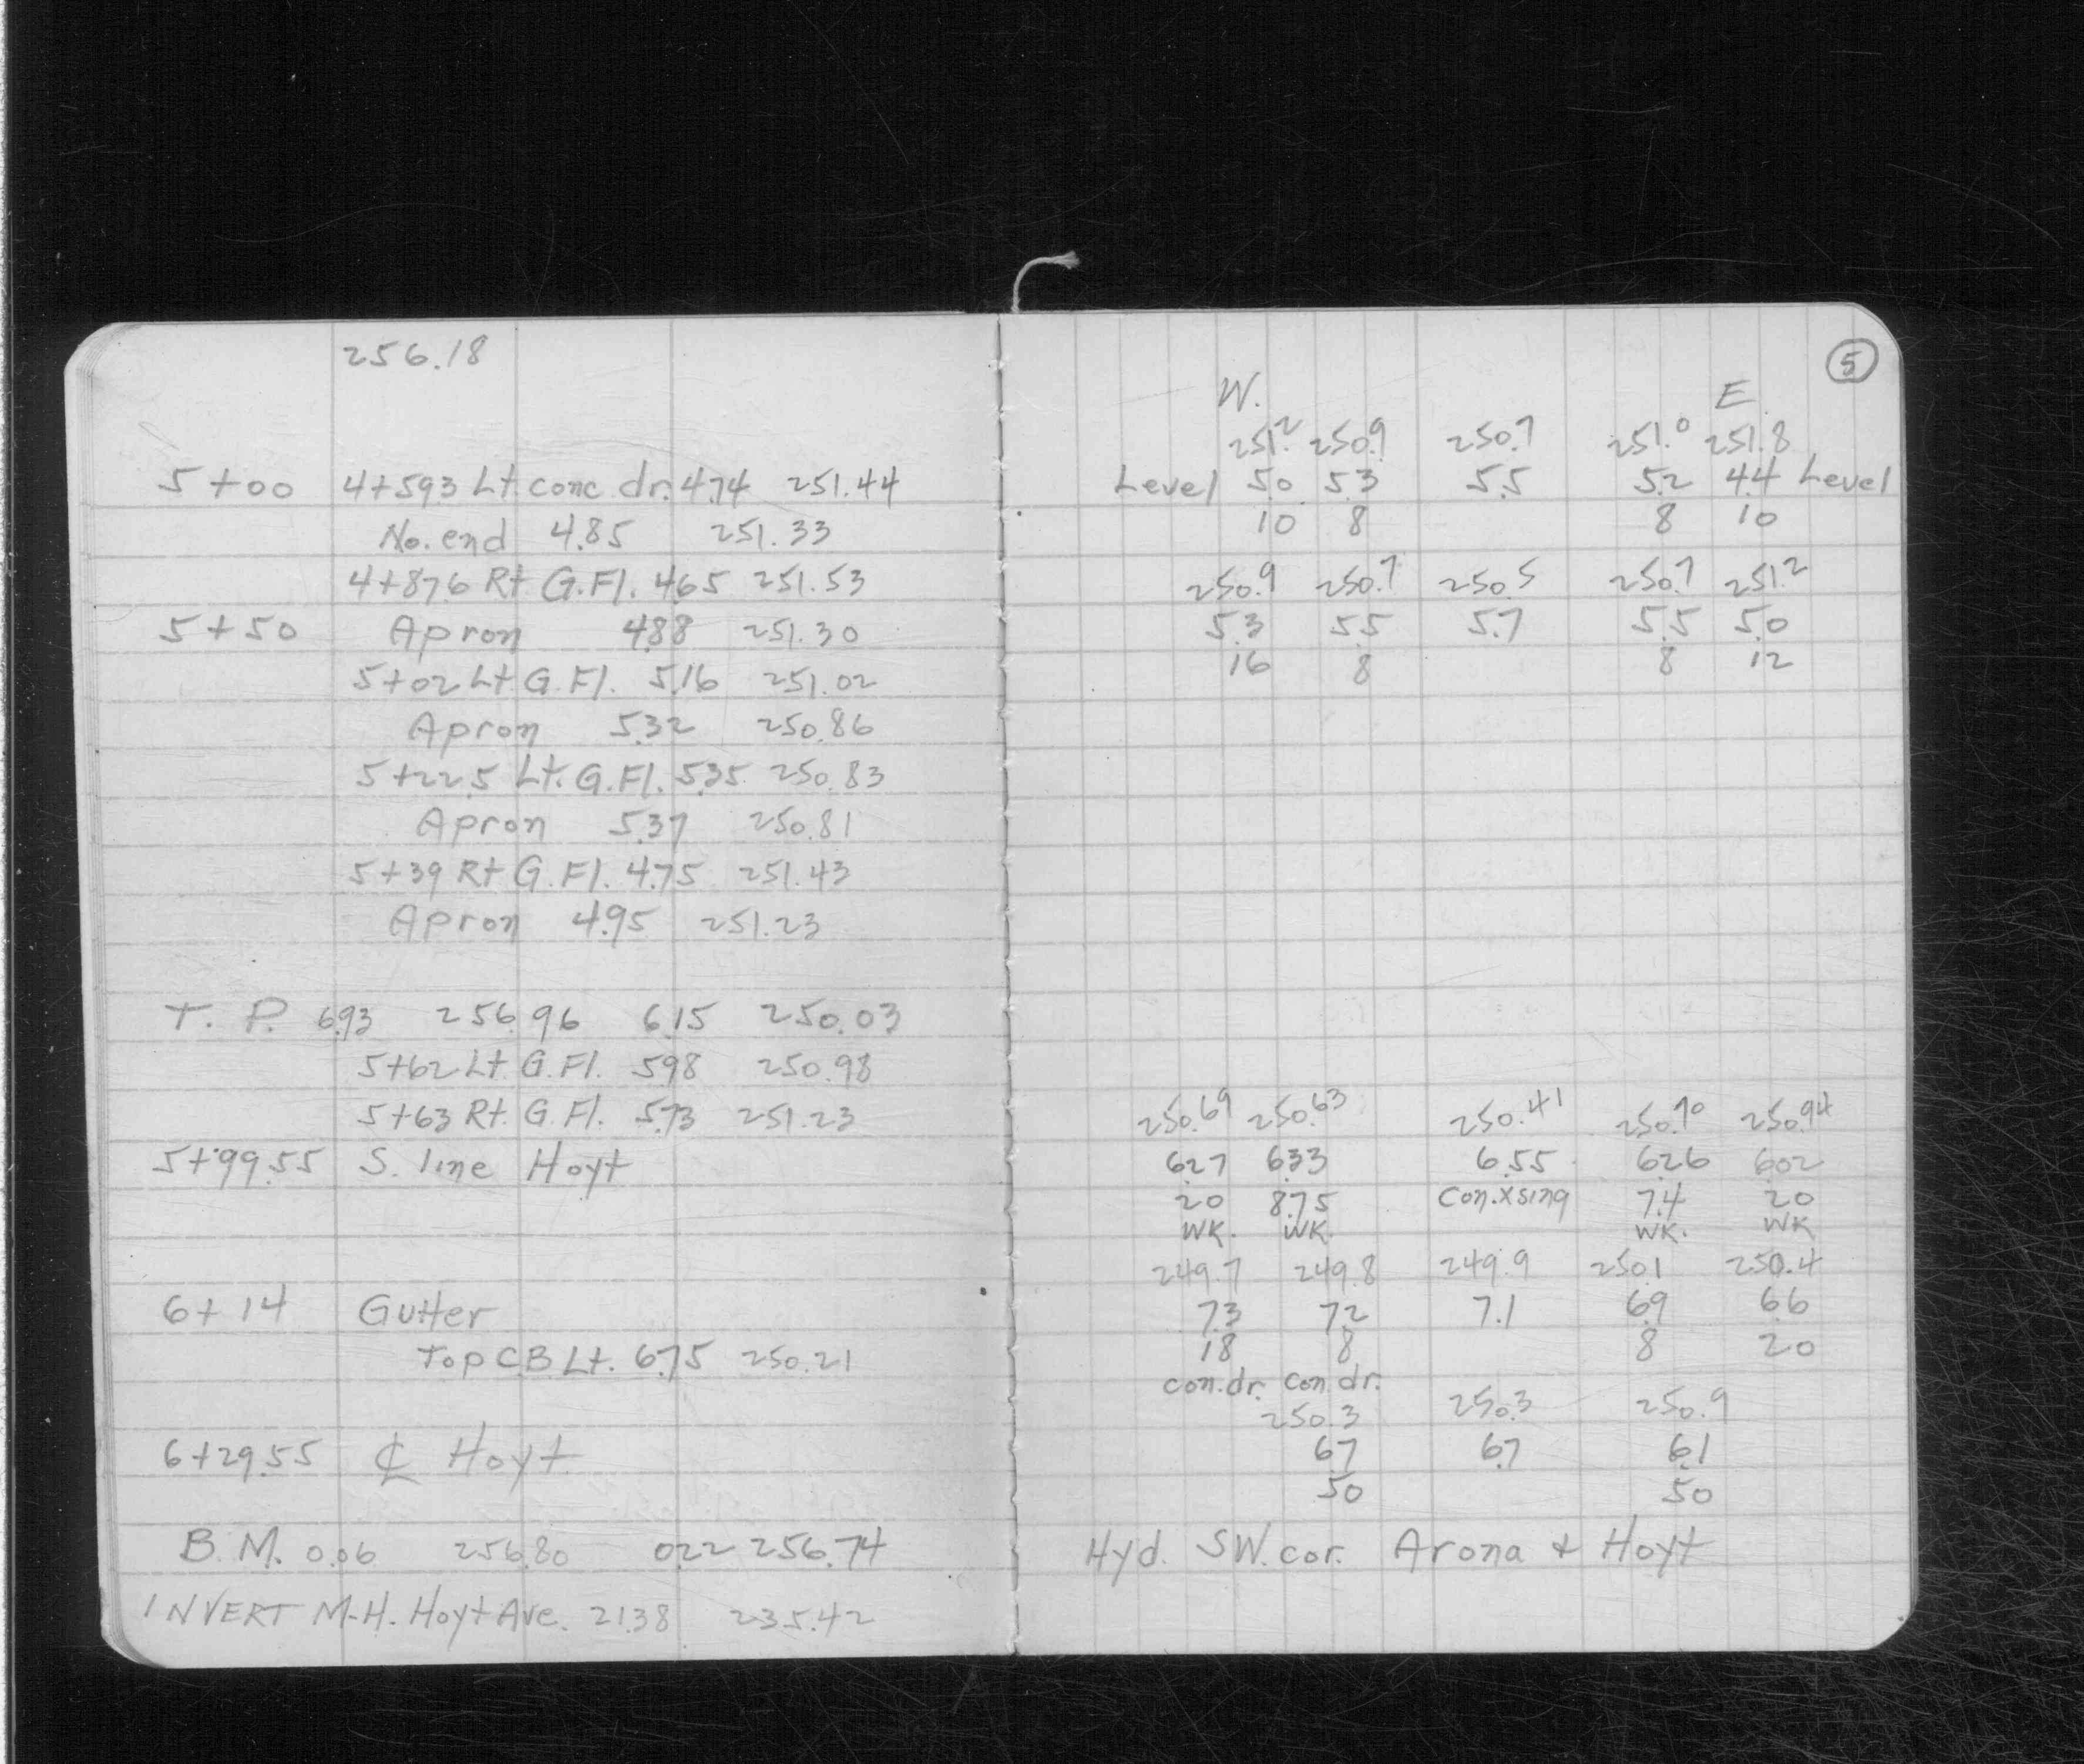 256.18
5+00 4+593 Lt conc dr. 4.74 251.44
No. end 4.85 251.33
4+876 Rt G.Fl. 4.65 251.53
5+50 Apron 4.88 251.30
5+02 Lt G.Fl. 5.16 251.02
Apron 5.32 250.86
5+22.5 Lt. G.Fl. 5.35 250.83
Apron 5.37 250.81
5+39 Rt G.Fl. 4.75 251.43
Apron 4.95 251.23
T. P. 6.93 256.96 6.15 250.03
5+62 Lt. G.Fl. 5.98 250.98
5+63 Rt. G.Fl. 5.73 251.23
5+99.55 S. line Hoyt
6+14 Gutter
Top C.B Lt. 6.75 250.21
6+29.55 ℄ Hoyt
B.M. 0.06 256.80 0.22 256.74
INVERT M-H. Hoyt Ave. 21.38 235.42
5
W. E
251.2 250.9 250.7 251.0 251.8
Level 5.0 5.3 5.5 5.2 4.4 Level
10 8 8 10
250.9 250.7 250.5 250.7 251.2
5.3 5.5 5.7 5.5 5.0
16 8 8 12
250.69 250.63 250.41 250.70 250.94
6.27 6.33 6.55 6.26 6.02
20 8.75 Con.xsing 7.4 20
WK. WK. WK. WK
249.7 249.8 249.9 250.1 250.4
7.3 7.2 7.1 6.9 6.6
18 8 8 20
con.dr. con dr.
250.3 250.3 250.9
6.7 6.7 6.1
50 50
Hyd. SW. cor. Arona + Hoyt